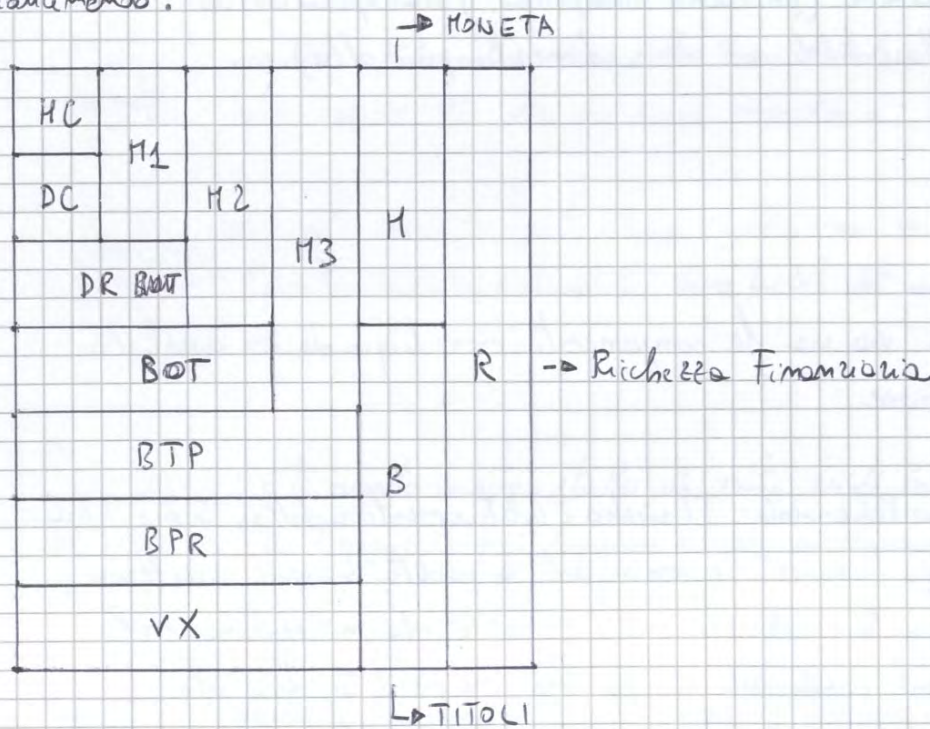 → MONETA
MC
M1
DC
M2
M3
M
DR
BOT
R → Ricchezza Finanziaria
BTP
B
BPR
VX
↳ TITOLI